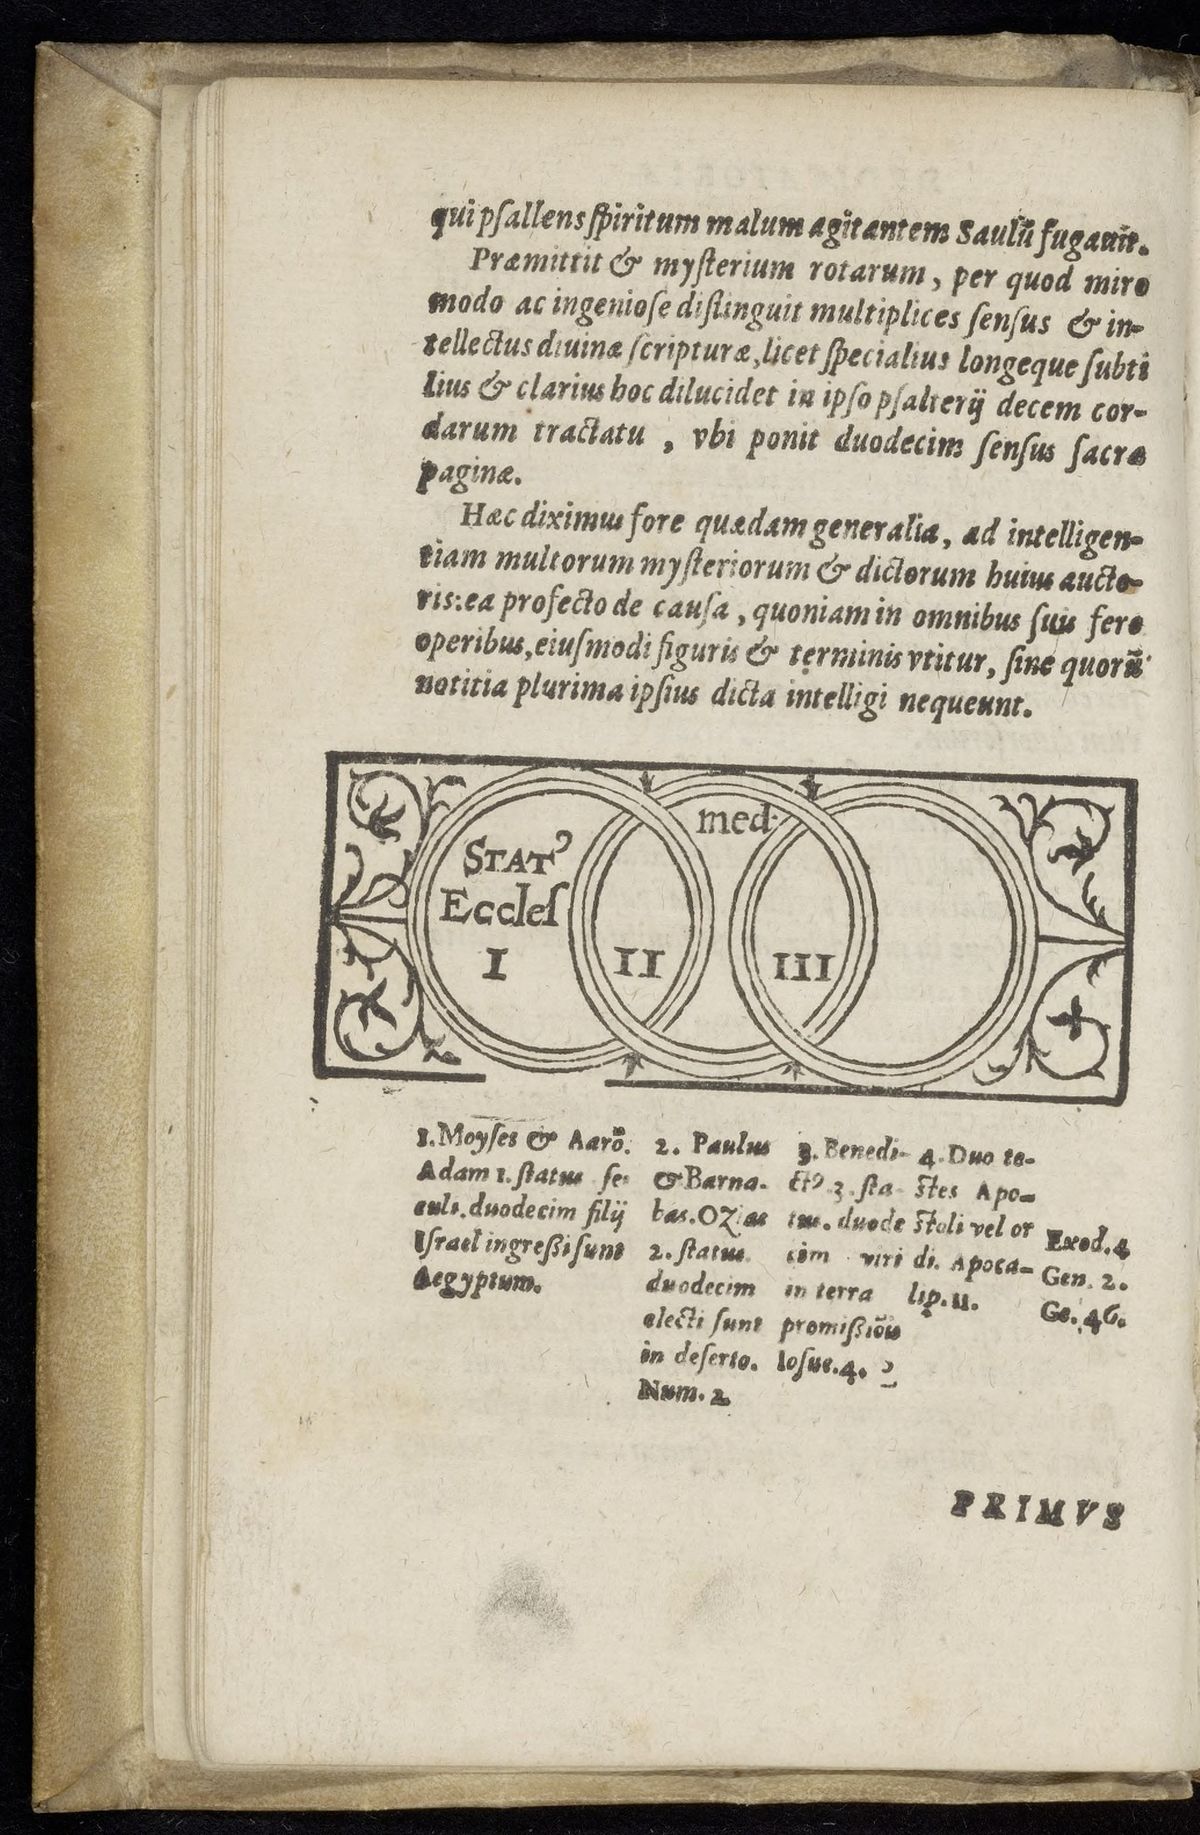 qui pſallens ſpiritum malum agitantem Saulū fugauit.
Præmittit & myſterium rotarum, per quod miro
modo ac ingenioſe diſtinguit multiplices ſenſus & in-
tellectus diuinæ ſcripturæ, licet ſpecialius longeque ſubti
lius & clarius hoc dilucidet in ipſo pſalterij decem cor-
darum tractatu, vbi ponit duodecim ſenſus ſacræ
paginæ.
Hæc diximus fore quædam generalia, ad intelligen-
tiam multorum myſteriorum & dictorum huius aucto-
ris: ea profecto de cauſa, quoniam in omnibus ſuis fere
operibus, eiuſmodi figuris & terminis vtitur, ſine quorū
notitia plurima ipſius dicta intelligi nequeunt.
med.
STATꝰ
Eccleſ
I II III
1. Moyſes & Aarō.
Adam 1. ſtatus ſe-
culi. duodecim filij
Iſrael ingreſſi ſunt
Aegyptum.
2. Paulus
& Barna-
bas. OZias
2. ſtatus
duodecim
electi ſunt
in deſerto.
Num. 2
3. Benedi-
ctꝰ 3. ſta-
tus. duode
cim viri
in terra
promiſſiōis
Ioſue. 4.
4. Duo te-
ſtes Apo-
ſtoli vel or
di. Apoca-
lip. 11.
Exod. 4
Gen. 2.
Ge. 46.
PRIMVS